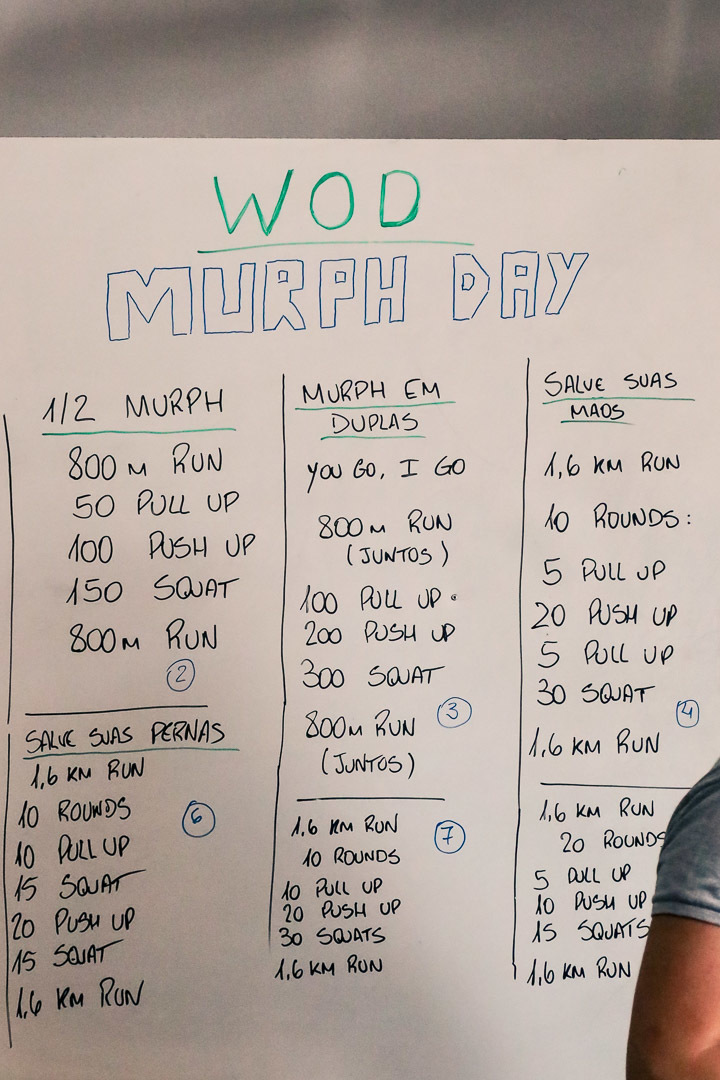 WOD
MURPH DAY
1/2 MURPH
800 m RUN
50 PULL UP
100 PUSH UP
150 SQUAT
800 m RUN
2
MURPH EM
DUPLAS
YOU GO, I GO
800 m RUN
(JUNTOS)
100 PULL UP
200 PUSH UP
300 SQUAT
800m RUN
3
(JUNTOS)
SALVE SUAS
MAOS
1,6 KM RUN
10 ROUNDS:
5 PULL UP
20 PUSH UP
5 PULL UP
30 SQUAT
4
1,6 KM RUN
SALVE SUAS PERNAS
1,6 KM RUN
10 ROUNDS
6
10 PULL UP
15 SQUAT
20 PUSH UP
15 SQUAT
1,6 KM RUN
1,6 KM RUN
7
10 ROUNDS
10 PULL UP
20 PUSH UP
30 SQUATS
1,6 KM RUN
1,6 KM RUN
20 ROUNDS
5 PULL UP
10 PUSH UP
15 SQUATS
1,6 KM RUN